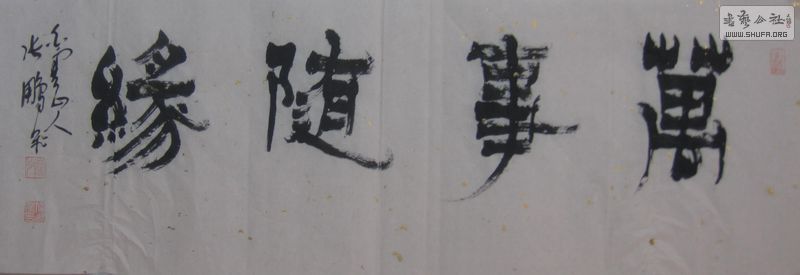 萬事隨緣
山人
張鵬
書藝公社
WWW.SHUFA.ORG